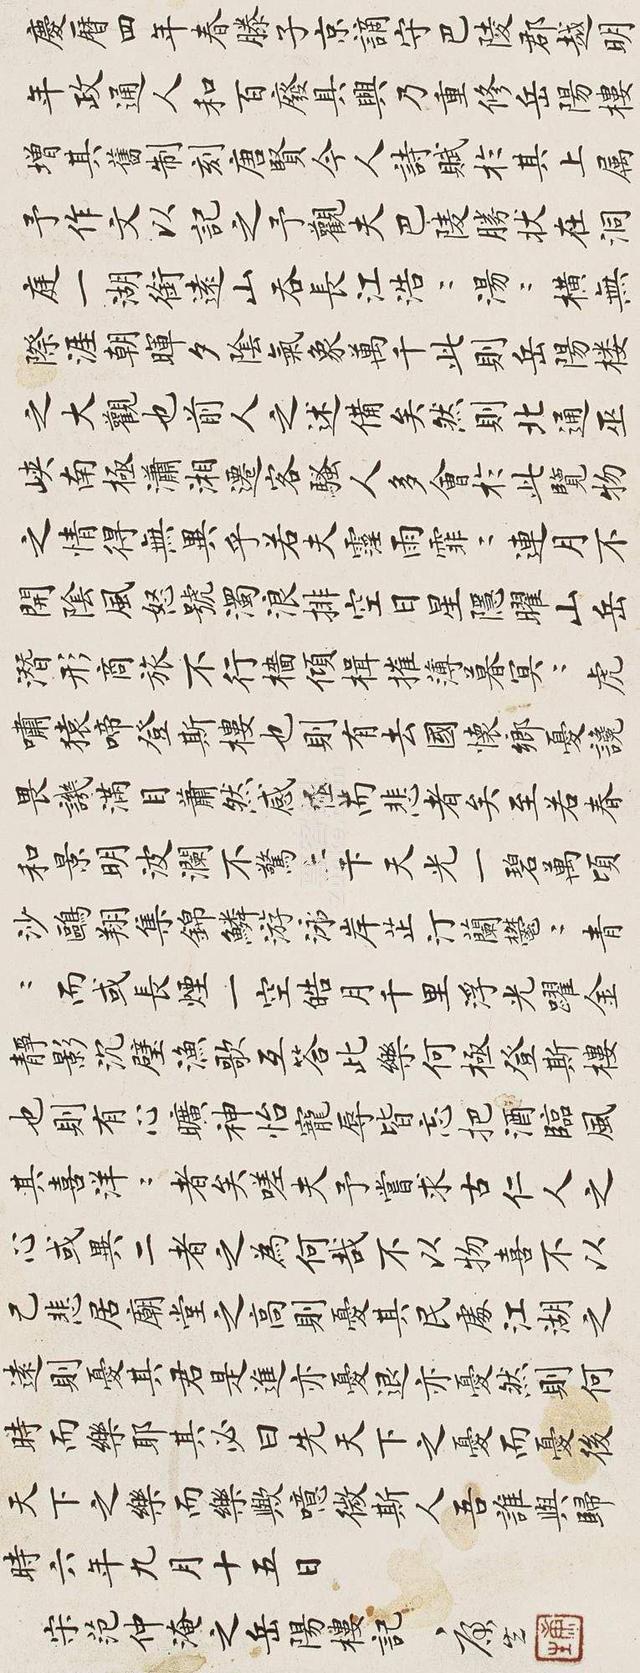 慶曆四年春滕子京謫守巴陵郡越明
年政通人和百廢具興乃重修岳陽樓
增其舊制刻唐賢今人詩賦於其上属
予作文以記之予觀夫巴陵勝状在洞
庭一湖銜遠山吞長江浩〻湯〻橫無
際涯朝暉夕陰氣象萬千此則岳陽樓
之大觀也前人之述備矣然則北通巫
峽南極瀟湘遷客騷人多會於此覽物
之情得無異乎若夫霪雨霏〻連月不
開陰風怒號濁浪排空日星隱曜山岳
潛形商旅不行檣傾楫摧薄暮冥〻虎
嘯猿啼登斯樓也則有去國懷鄉憂讒
畏譏滿目蕭然感極而悲者矣至若春
和景明波瀾不驚上下天光一碧萬頃
沙鷗翔集錦鱗游泳岸芷汀蘭鬱〻青
〻而或長煙一空皓月千里浮光躍金
靜影沉璧漁歌互答此樂何極登斯樓
也則有心曠神怡寵辱皆忘把酒臨風
其喜洋〻者矣嗟夫予嘗求古仁人之
心或異二者之為何哉不以物喜不以
己悲居廟堂之高則憂其民處江湖之
遠則憂其君是進亦憂退亦憂然則何
時而樂耶其必曰先天下之憂而憂後
天下之樂而樂歟噫微斯人吾誰與歸
時六年九月十五日
宋范仲淹之岳陽樓記